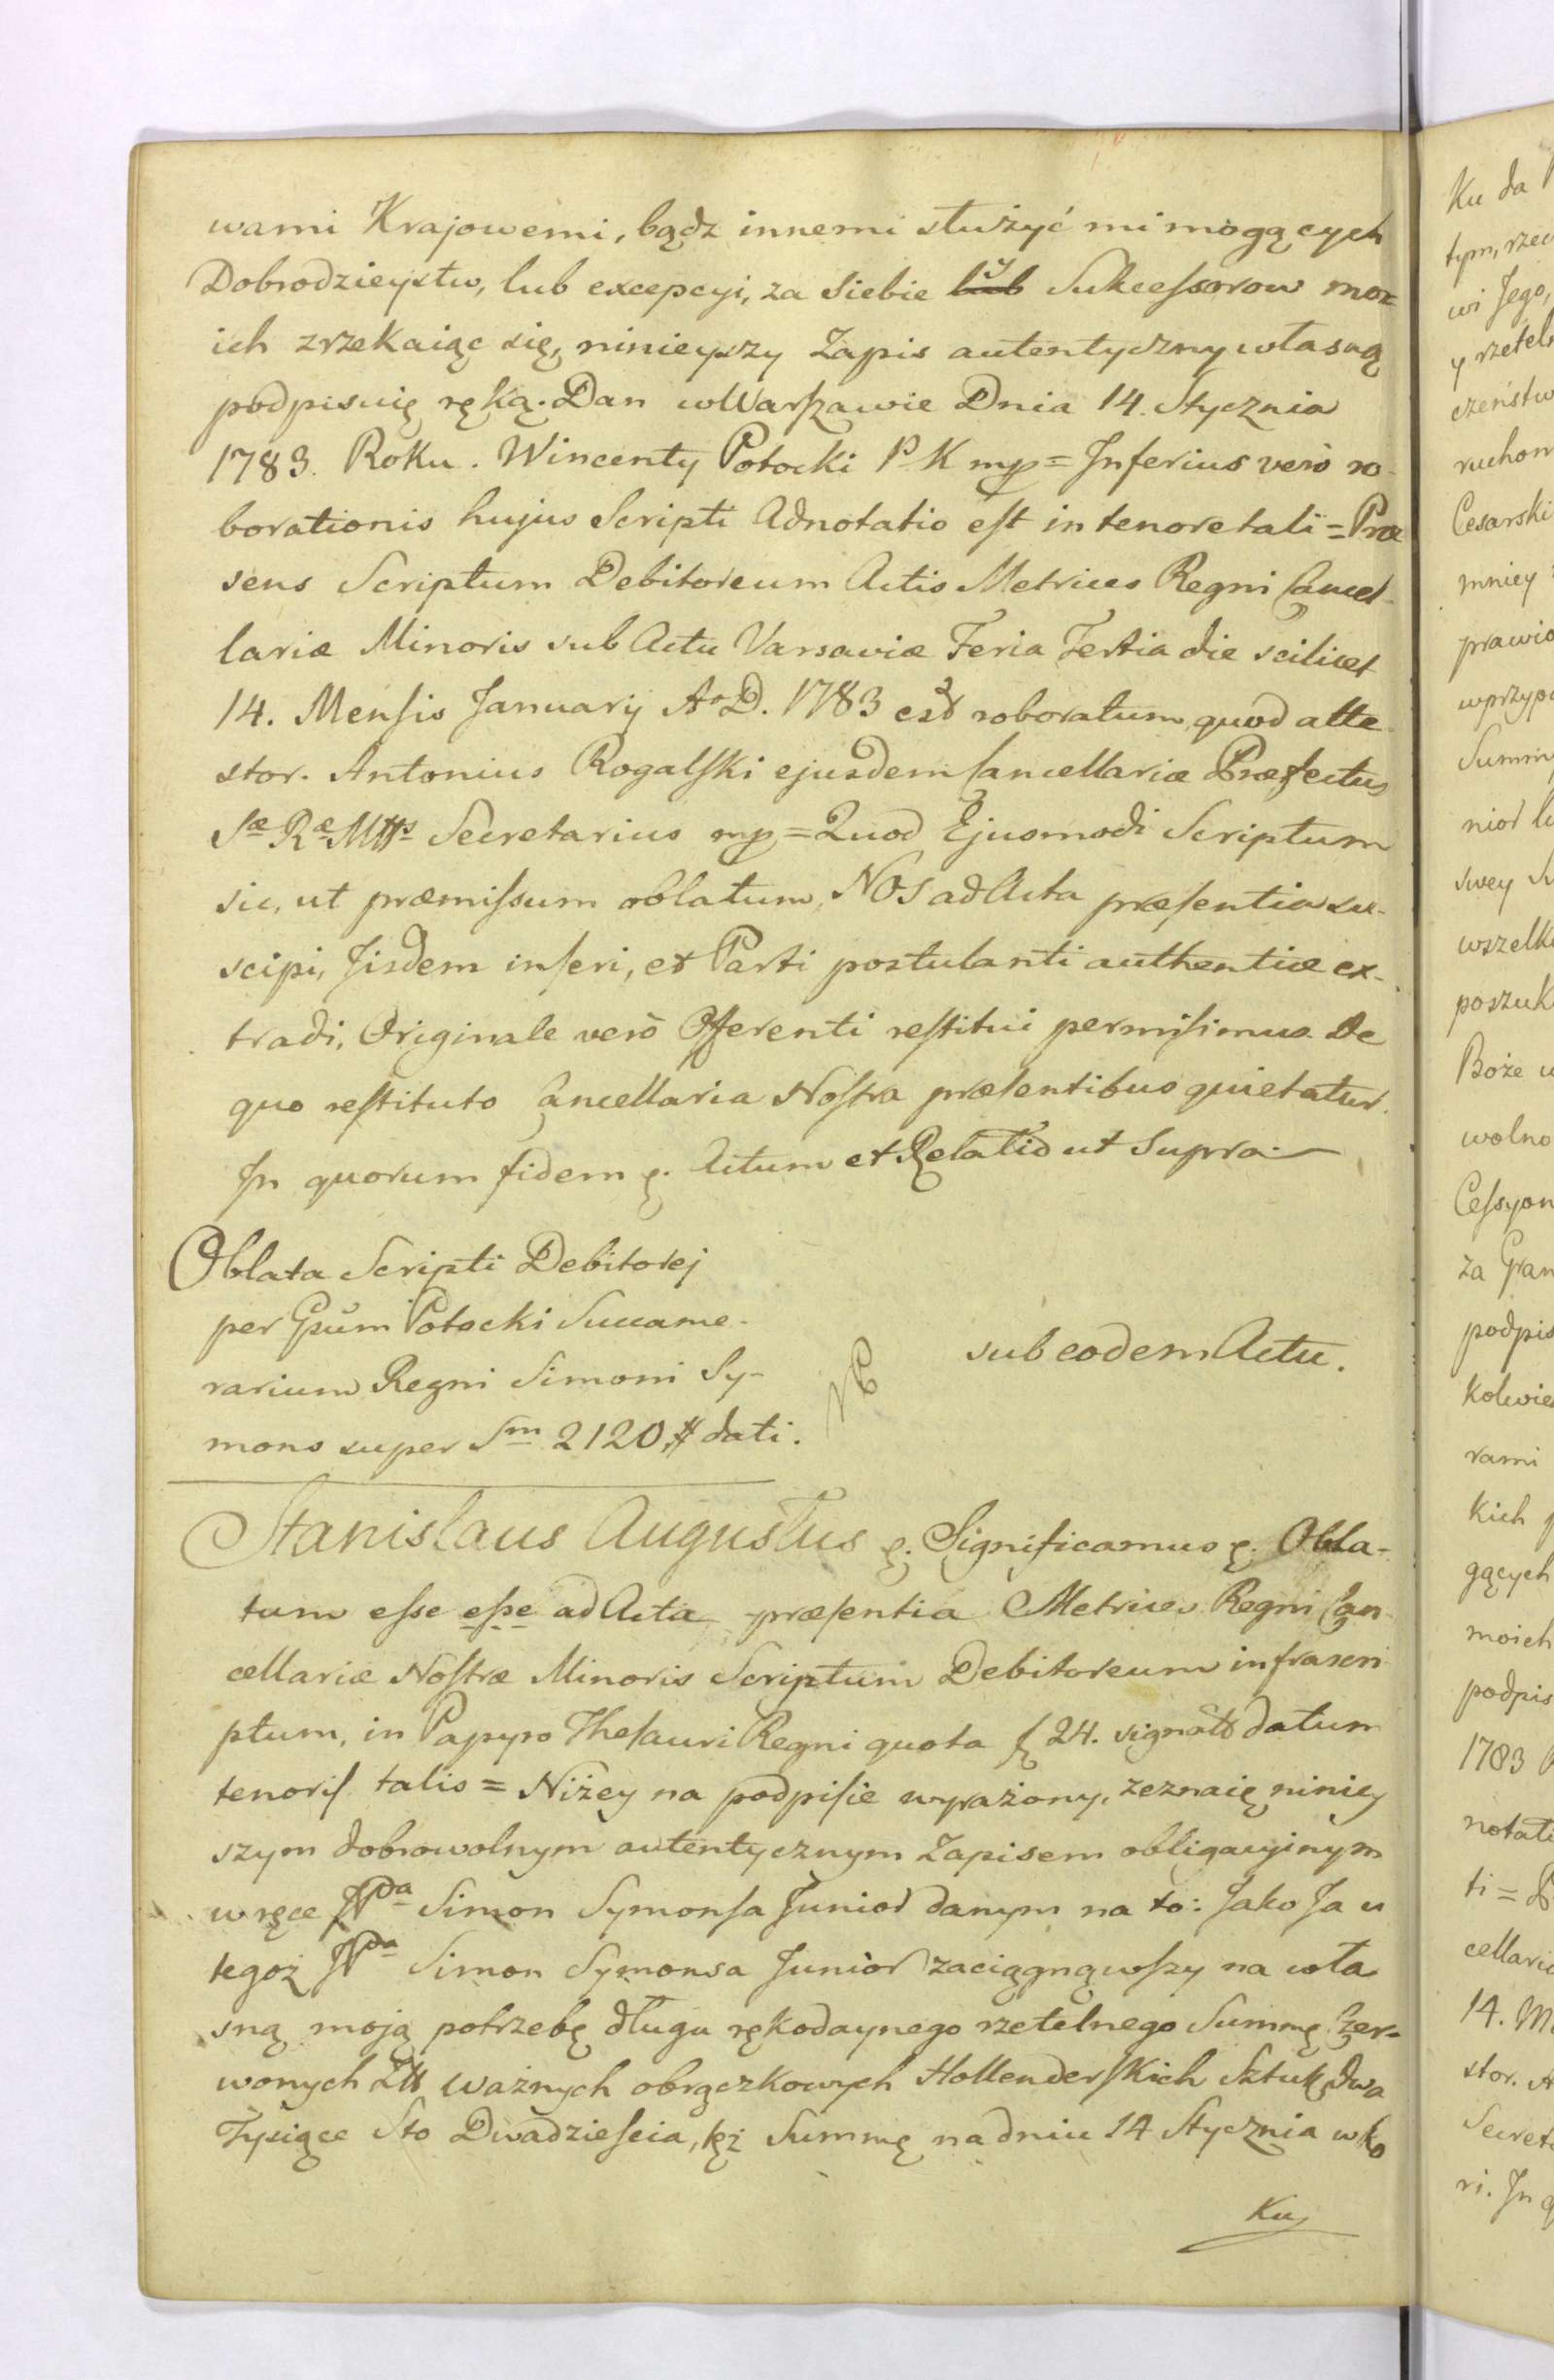 wami Krajowemi, bądz innemi służyć mi mogących
Dobrodzieystw, lub excepcyi, za siebie y Sukceſsorow mo=
ich zrzekaiąc się, ninieyszy Zapis autentyczny własną
podpisuię ręką. Dan w Warſzawie Dnia 14. Stycznia
1783. Roku. Wincenty Potocki PK mp = Inferius verò ro-
borationis hujus Scripti Adnotatio eſt in tenore tali = Præ
sens Scriptum Debitoreum Actis Metrices Regni Cancel-
lariæ Minoris sub Actu Varsaviæ Feria Tertia die scilicet
14. Menſis January Aº D. 1783 est roboratum, quod atte-
stor. Antonius Rogalſki ejusdem Cancellariæ Præfectus
Sæ Ræ Mttis Secretarius mp = Quod Ejusmodi Scriptum
sic, ut præmiſsum oblatum, NOS ad Acta præſentia su-
scipi, Iisdem inſeri, et Parti postulanti authentice ex-
tradi, Originale verò Offerenti reſtitui permiſimus. De
quo reſtituto Cancellaria Noſtra præſentibus quietatur.
In quorum fidem ꝛ. Actum et Relatio ut Supra.
Oblata Scripti Debitorej
per Gsum Potocki Succame-
rarium Regni Simoni Sy-
mons super Sm 2120 # dati.
sub eodem Actu.
Stanislaus Augustus ꝛ. Significamus ꝛ. Obla-
tum eſse eſse ad Acta præſentia Metrices Regni Can-
cellariæ Noſtræ Minoris Scriptum Debitoreum infrascri
ptum, in Papyro Theſauri Regni quota f 24. signato datum
tenoriſ talis = Niżey na podpiſie wyrażony, zeznaię niniey
szym dobrowolnym autentycznym Zapisem obligacyinym
w ręce JPda Simon Symonſa Junior danym na to: Jako Ja u
tegoż JPda Simon Symonsa Junior zaciągnąwſzy na wła
sną moją potrzebę długu rękodaynego rzetelnego Summę Czer=
wonych Złł ważnych obrączkowych Hollenderſkich Sztuk dwa
Tysiące Sto Dwadzieſcia, tęż Summę na dniu 14 Stycznia w Ro
Ku
Ku da
tym, rzec
wi Jego,
y rzetel
czeństw
ruchom
Cesarski
mniey
prawio
w przyp
Summ
nior
swey
wszelk
poszuk
Boże
wolno
Ceſsyon
za Gran
podpis
kolwie
rami
kich
gących
moich
podpis
1783
notati
ti =
cellari
14. M
stor. A
Secret
ri. In